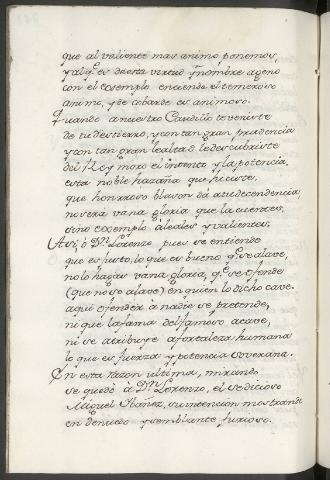 que al valiente mas animo ponemos,
y al qe. es de esta virtud y nombre ageno
con el exemplo enciende el temeroso
animo, y de cobarde es animoso.
Quando a nuestro Caudillo te veniste
de tu destierro, y con tan gran prudencia
y con tan gran lealtad le descubriste
del Rey moro el intento y la potencia,
esta noble hazaña que hiciste,
que honrroso blason dá a tu decendencia,
no sera vana gloria que la cuentes,
sino exemplo a leales y valientes.
Asi, ò Dn. Lorenzo, pues se entiende
que es justo, lo que es bueno qe. se alave,
no lo hagas vana gloria, qe. se ofende
(que no se alave) en quien lo dicho cave.
aqui ofender à nadie se pretende,
ni que la fama del famoso acave,
ni se atribuye a fortaleza humana
lo que es fuerza y potencia soverana.
En esta razon ultima, mirando
se quedó à Dn. Lorenzo, el sedicioso
Miguel Ibañez, su intencion mostrando
en denuedo y semblante furioso.